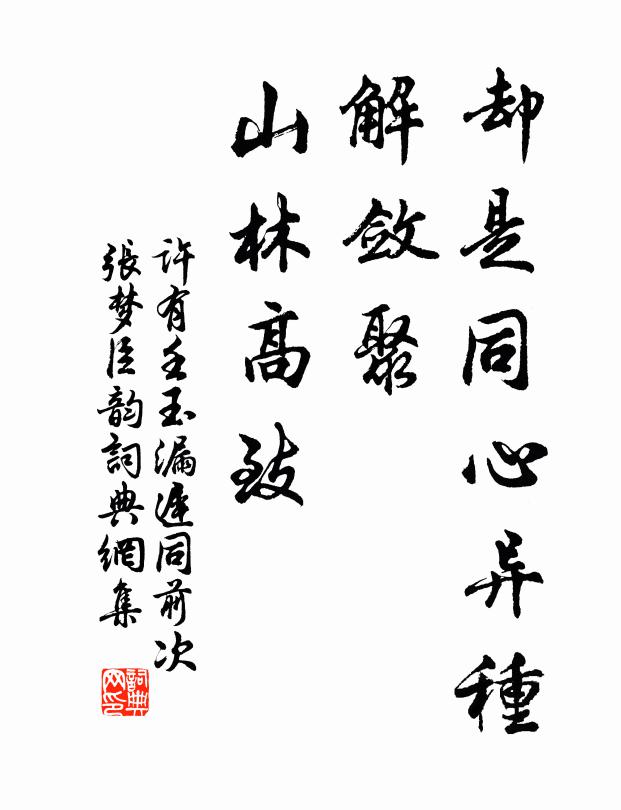 却是同心异種
解斂聚
山林高致
許有壬玉漏遲同前次
張梦臣韵詞典網集
詞典
网印